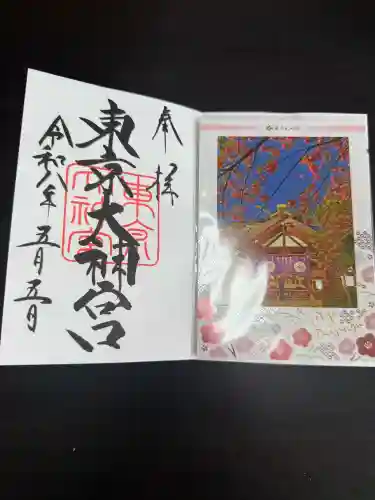 奉拝
東京大神宮
東京
大神宮
令和八年五月五日